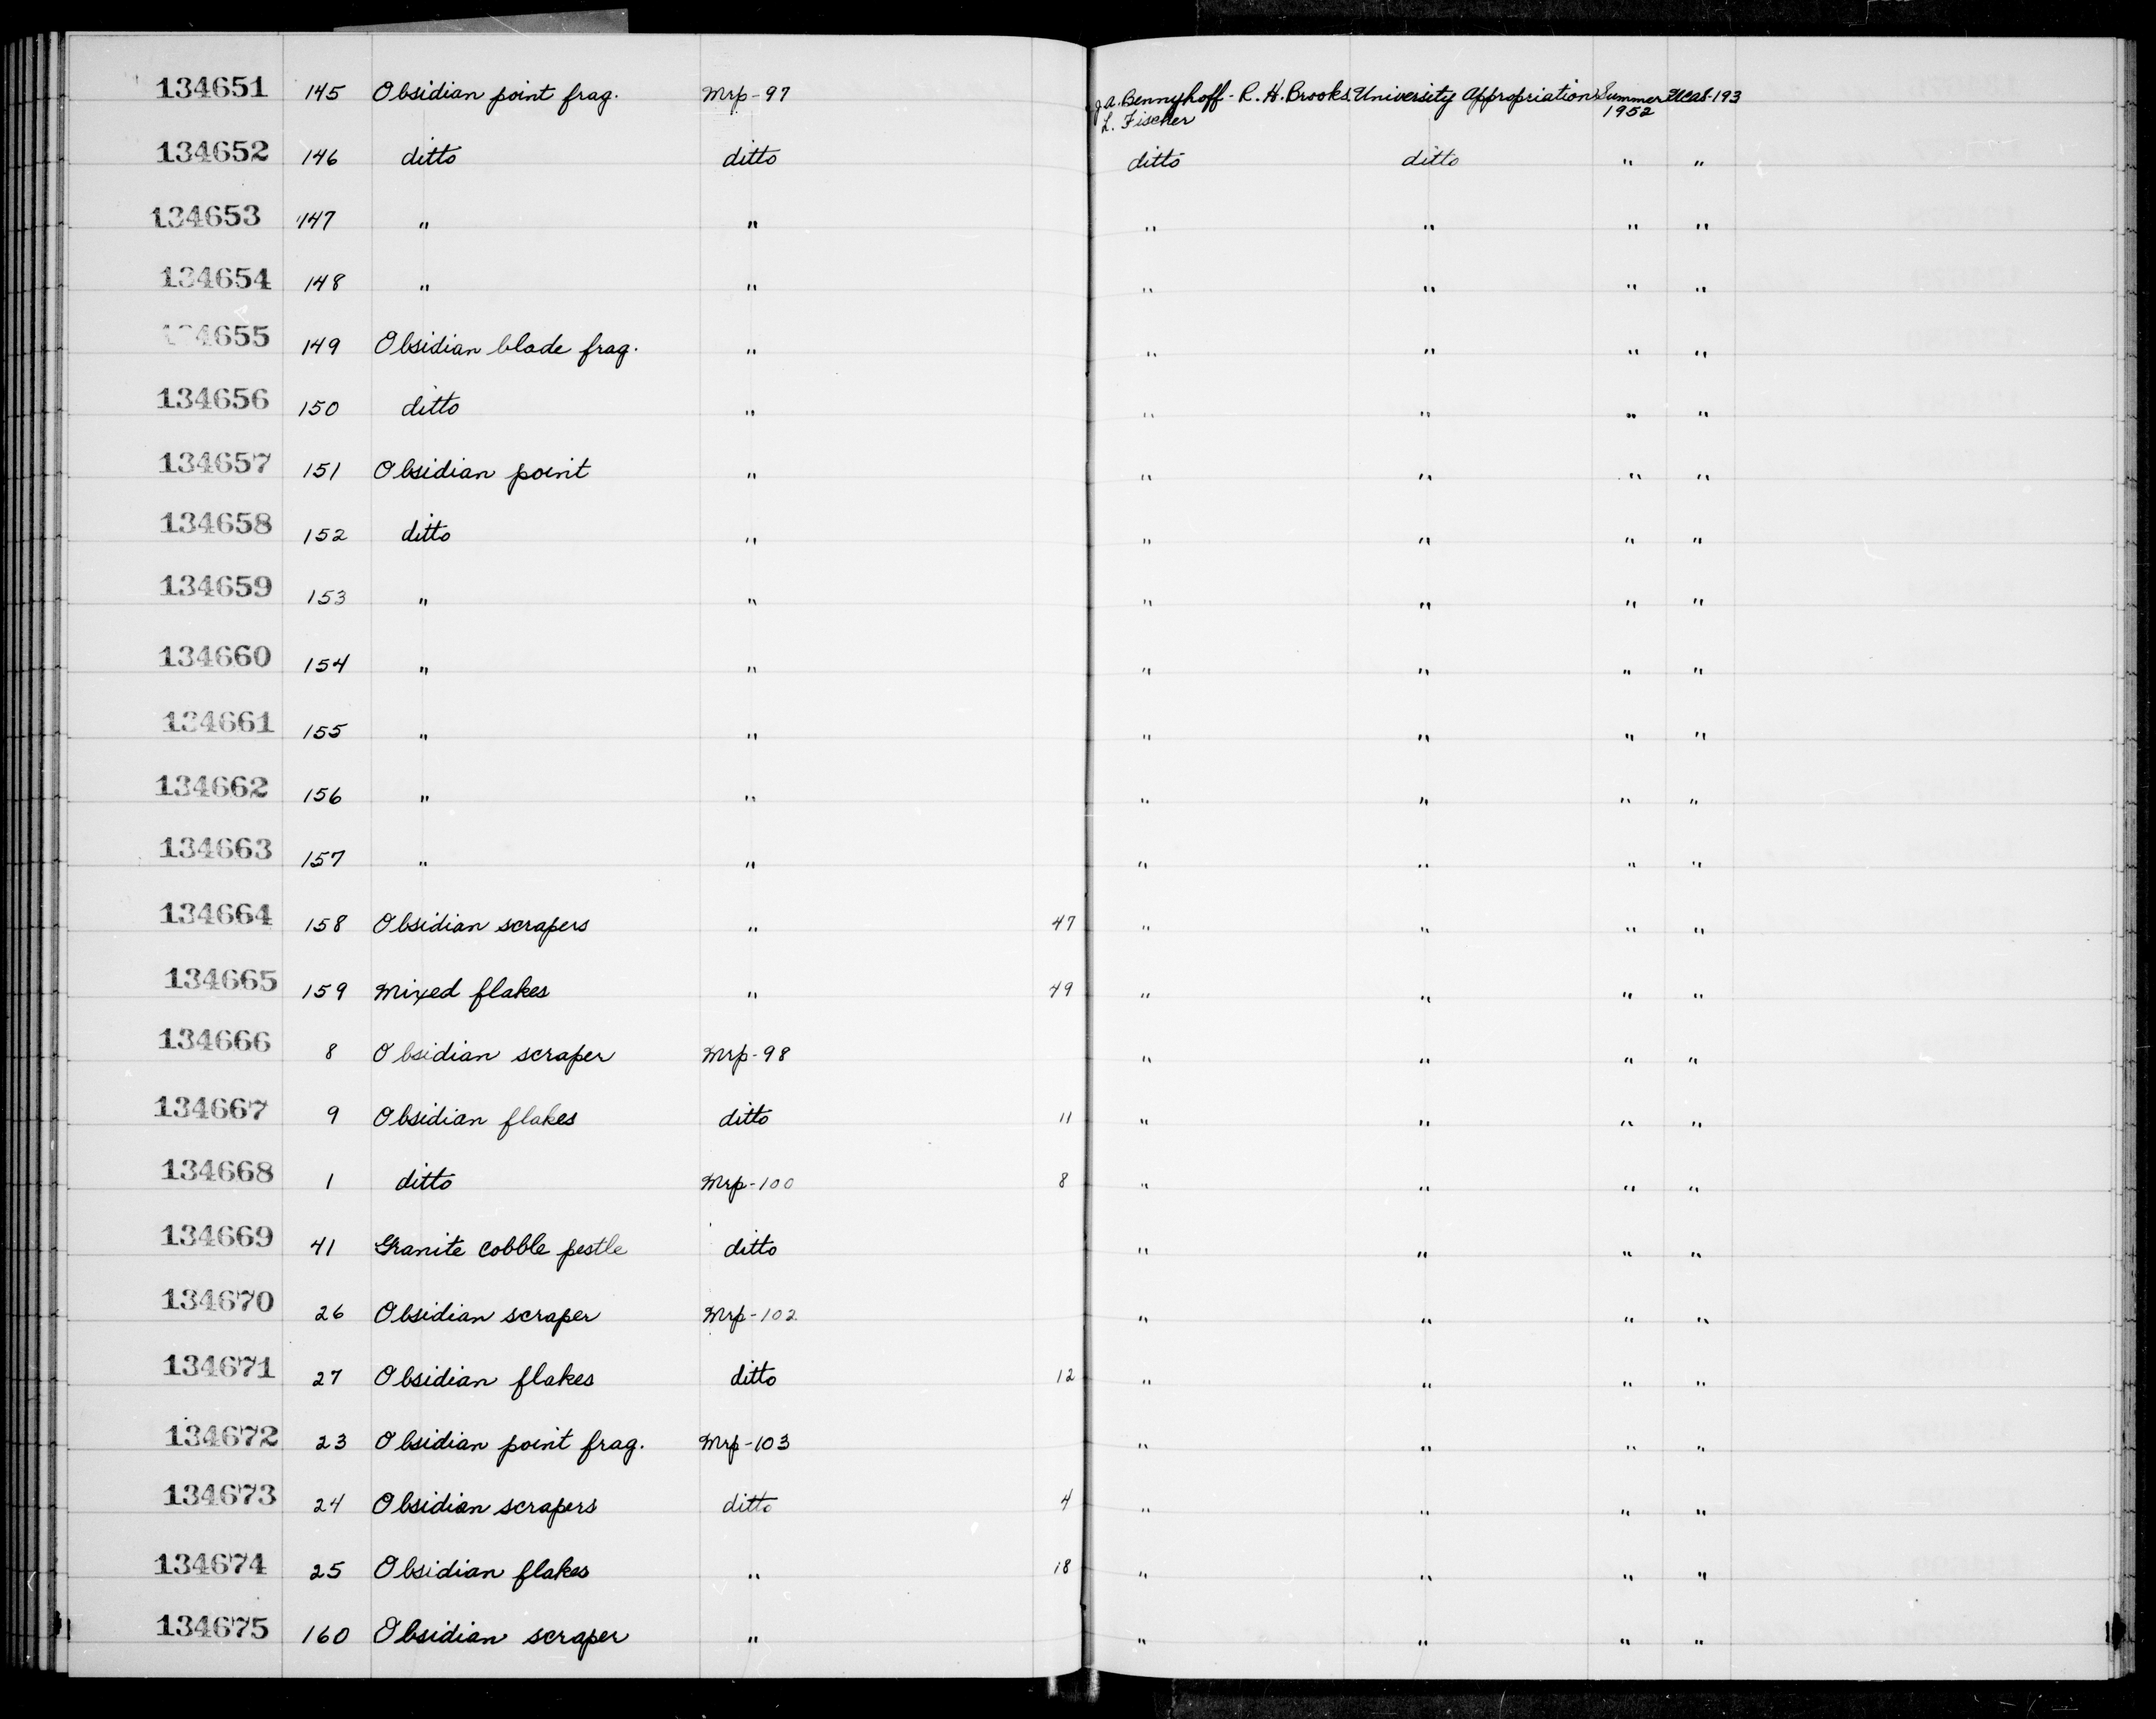 134651 145 Obsidian point frag. Mrp-97 J.A. Bennyhoff - R.H. Brooks University Appropriation Summer UCAS-193
L. Fischer 1952
134652 146 ditto ditto ditto ditto " "
134653 147 " " " " " "
134654 148 " " " " " "
134655 149 Obsidian blade frag. " " " " "
134656 150 ditto " " " " "
134657 151 Obsidian point " " " " "
134658 152 ditto " " " " "
134659 153 " " " " " "
134660 154 " " " " " "
134661 155 " " " " " "
134662 156 " " " " " "
134663 157 " " " " " "
134664 158 Obsidian scrapers " 47 " " " "
134665 159 Mixed flakes " 49 " " " "
134666 8 Obsidian scraper Mrp-98 " " " "
134667 9 Obsidian flakes ditto 11 " " " "
134668 1 ditto Mrp-100 8 " " " "
134669 41 Granite cobble pestle ditto " " " "
134670 26 Obsidian scraper Mrp-102 " " " "
134671 27 Obsidian flakes ditto 12 " " " "
134672 23 Obsidian point frag. Mrp-103 " " " "
134673 24 Obsidian scrapers ditto 4 " " " "
134674 25 Obsidian flakes " 18 " " " "
134675 160 Obsidian scraper " " " " "